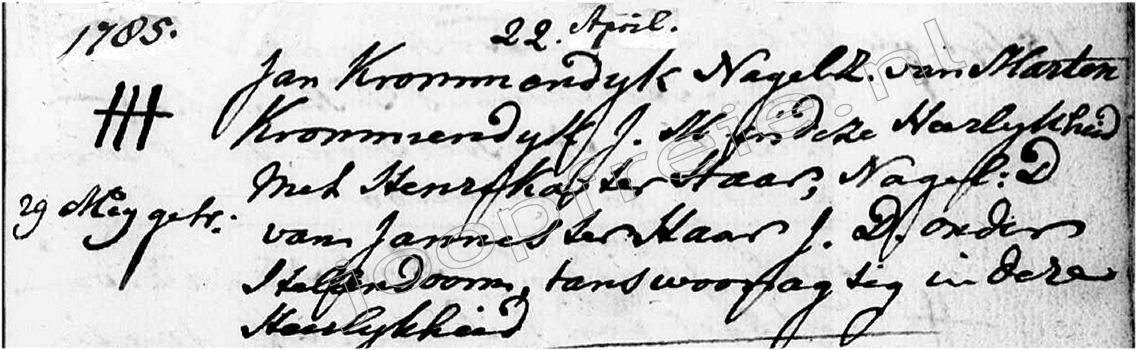 1785.
22. April.
Jan Krommendyk Nagel.Z. van Marten
Krommendyk J. M. in deze Heerlykheid
met Henrika ter Haar, Nagel: D
29 Mey getr.
van Jannes ter Haar J. D. onder
tans woonagtig in deze
Heerlykheid
joopreis.nl